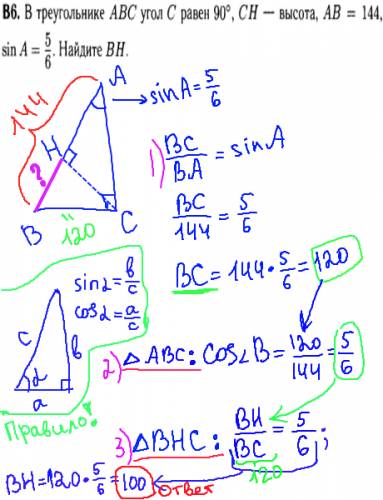 B6. В треугольнике ABC угол C равен 90°, CH — высота, AB = 144,
sin A = 5/6. Найдите BH.
A
sinA = 5/6
144
H
?
B
120
C
1) BC/BA = sinA
BC/144 = 5/6
BC = 144 · 5/6 = 120
sinα = b/c
cosα = a/c
c
b
α
a
Правило!
2) △ABC: Cos∠B = 120/144 = 5/6
3) △BHC: BH/BC = 5/6;
120
BH = 120 · 5/6 = 100 ответ